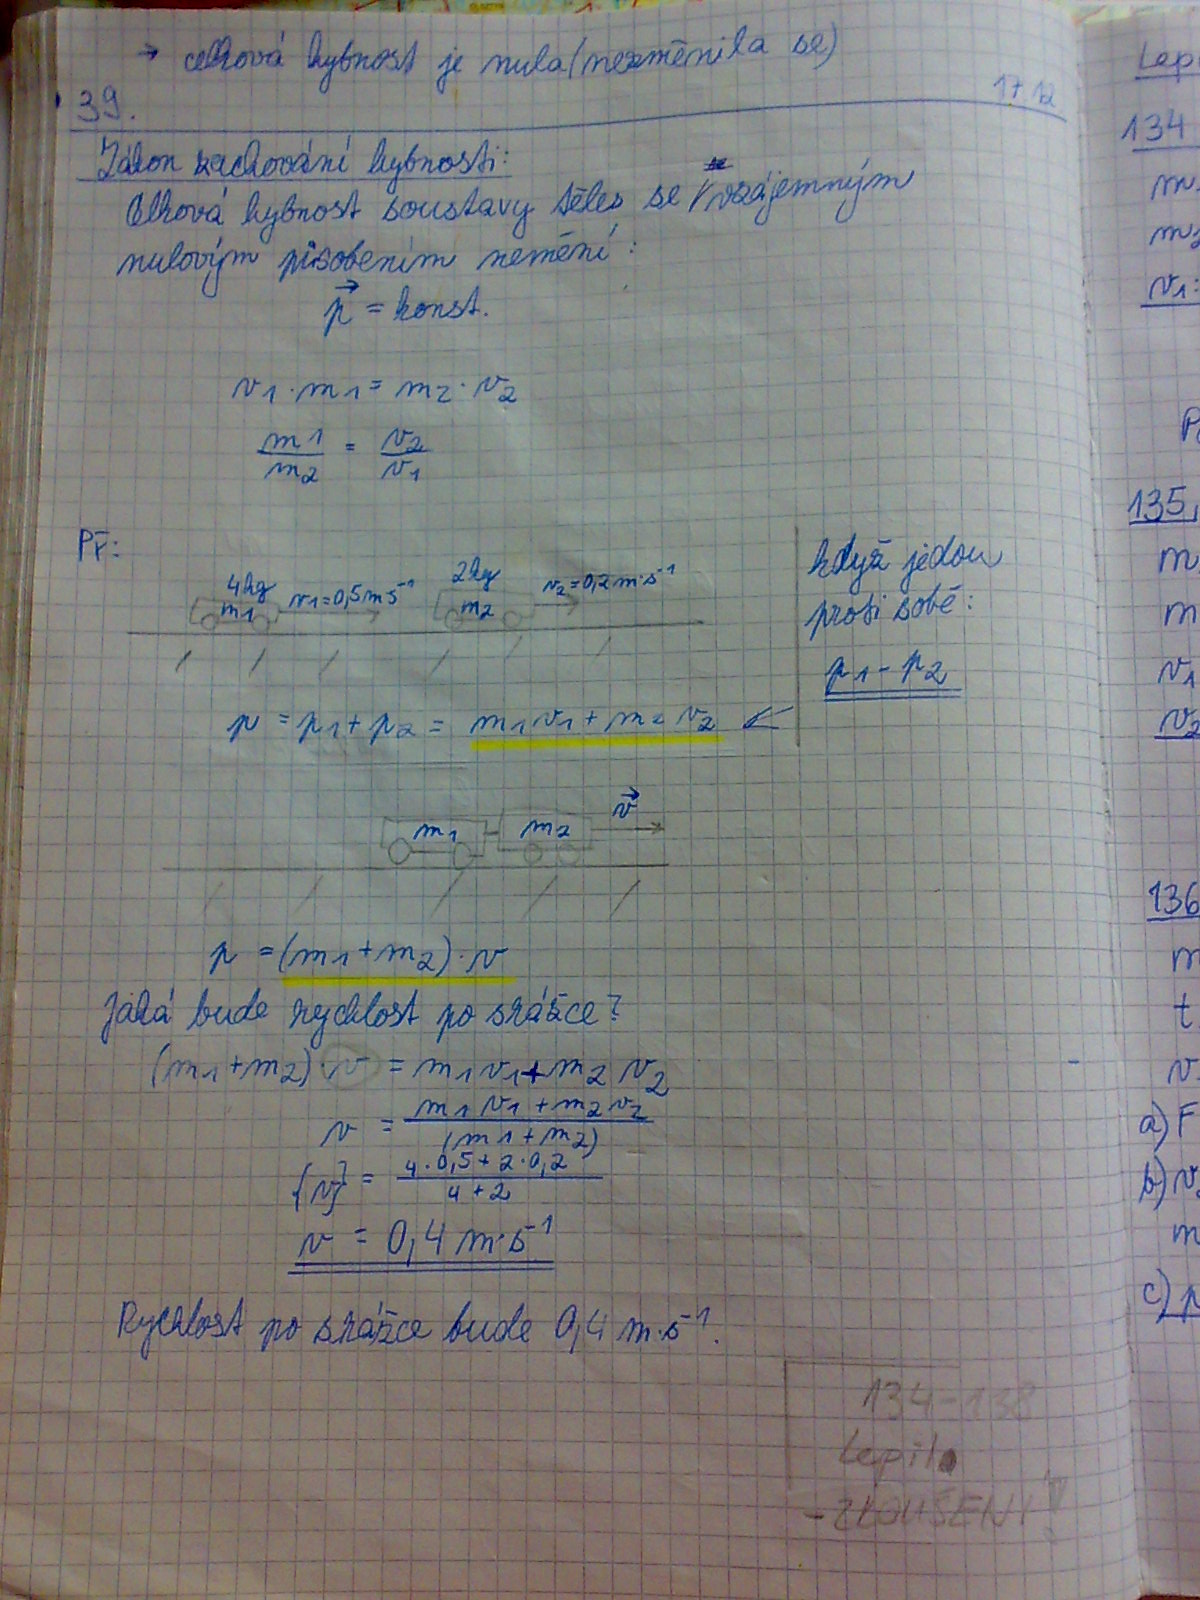 → celková hybnost je nula (nezměnila se)
39. 17.12.
Zákon zachování hybnosti:
Celková hybnost soustavy těles se vzájemným
nulovým působením nemění:
p⃗ = konst.
v1 · m1 = m2 · v2
m1/m2 = v2/v1
Př:
4kg
m1 v1=0,5 m·s⁻¹
2kg
m2 v2=0,2 m·s⁻¹
když jedou
proti sobě:
p1 - p2
p = p1 + p2 = m1 v1 + m2 v2 ←
m1 m2 v⃗
p = (m1+m2) · v
Jaká bude rychlost po srážce?
(m1+m2) · v = m1 v1 + m2 v2
v = m1 v1 + m2 v2 / (m1 + m2)
{v} = 4·0,5 + 2·0,2 / 4+2
v = 0,4 m·s⁻¹
Rychlost po srážce bude 0,4 m·s⁻¹.
134-138
Lepil
- ZKOUŠENÍ!
Lepi
134
m
m2
v1:
135,
m
m
v1
v2
136
m
t
v
a) F
b) v
m
c) p